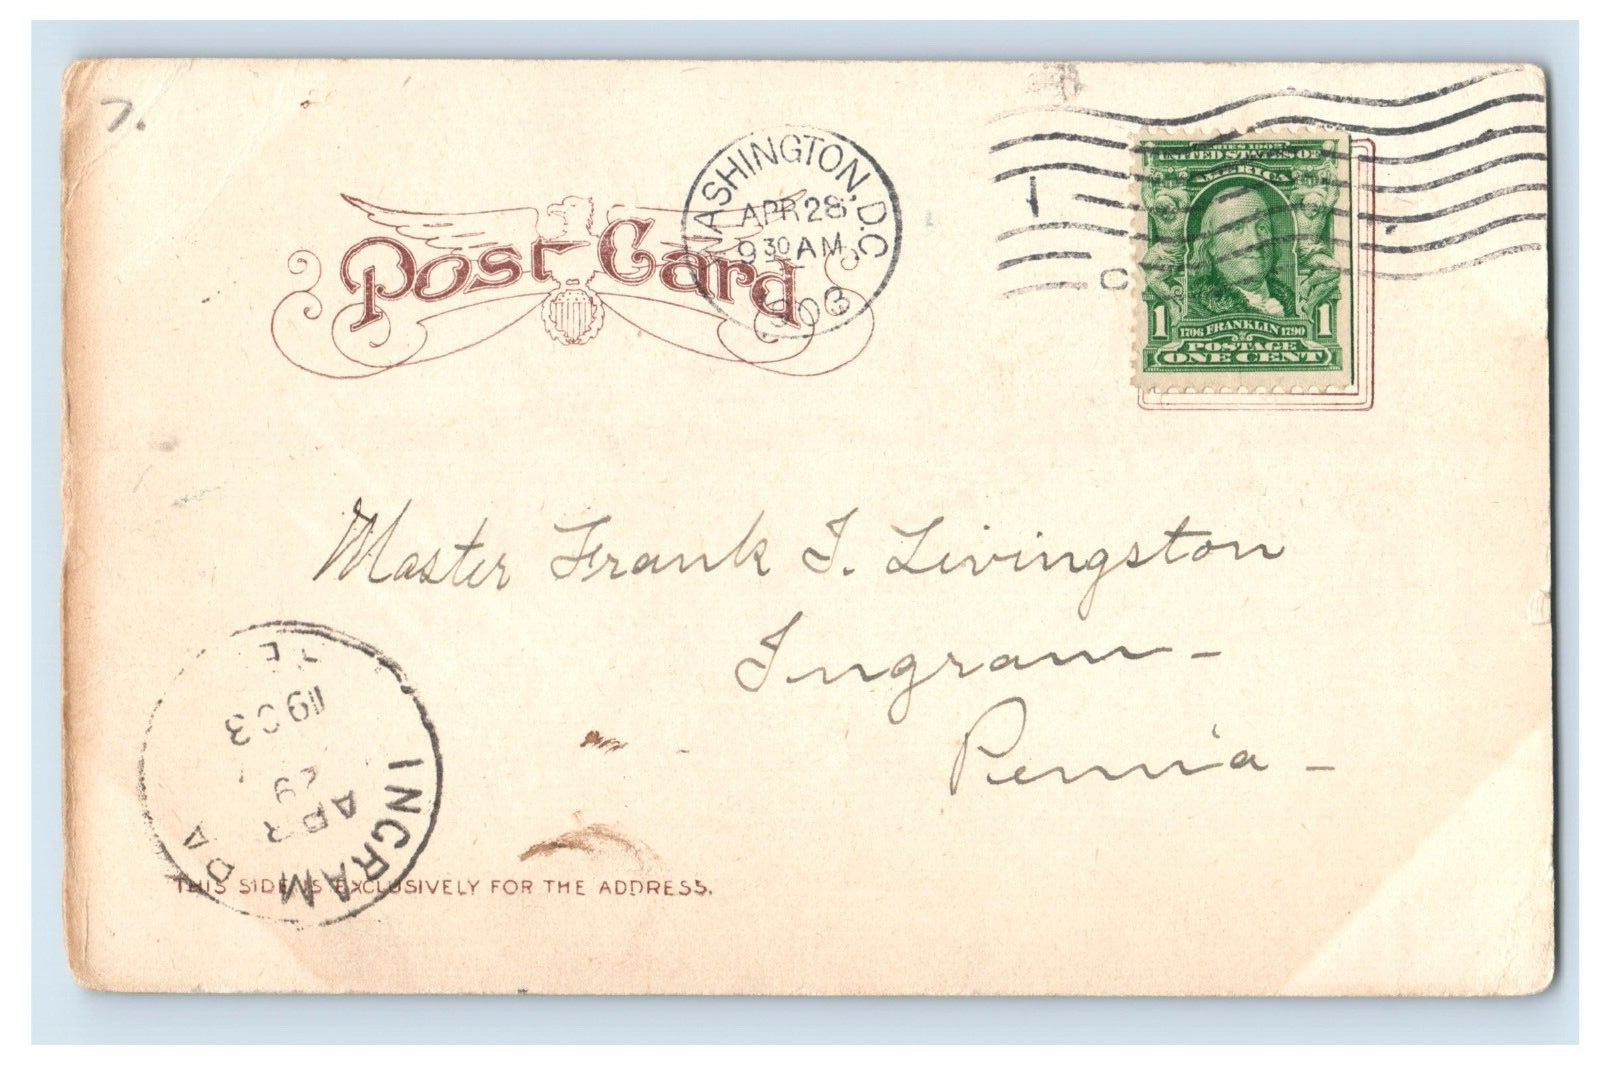 7.
Post Card
WASHINGTON, D.C.
APR 28
930 AM
1903
1
C
SERIES 1902
UNITED STATES OF
AMERICA
1 1706 FRANKLIN 1790 1
POSTAGE
ONE CENT
Master Frank I. Livingston
Ingram -
Penn'a -
INGRAM PA
APR
29
1903
THIS SIDE IS EXCLUSIVELY FOR THE ADDRESS.